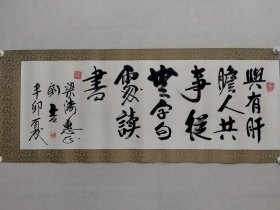 與有肝
膽人共
事從
無字句
處讀
書
梁濤惠正
劉吉
辛卯